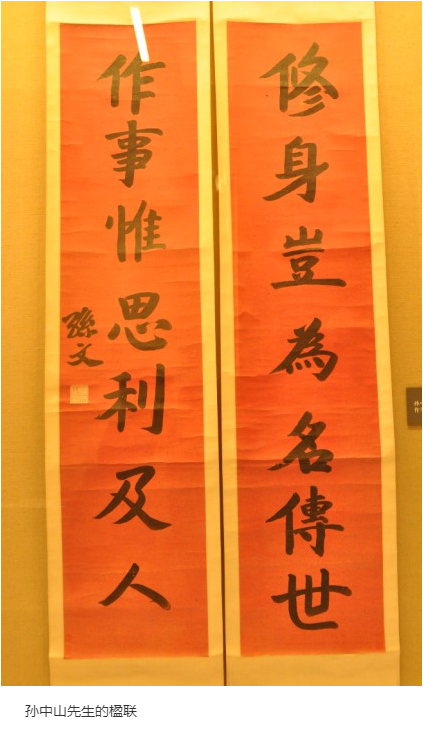 修身豈為名傳世
作事惟思利及人
孫文
孙中山先生的楹联